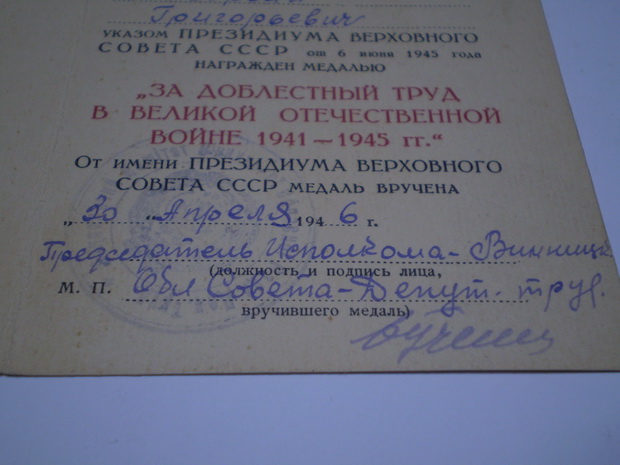 Григорьевич
указом ПРЕЗИДИУМА ВЕРХОВНОГО
СОВЕТА СССР от 6 июня 1945 года
НАГРАЖДЕН МЕДАЛЬЮ
„ЗА ДОБЛЕСТНЫЙ ТРУД
В ВЕЛИКОЙ ОТЕЧЕСТВЕННОЙ
ВОЙНЕ 1941—1945 гг.“
От имени ПРЕЗИДИУМА ВЕРХОВНОГО
СОВЕТА СССР МЕДАЛЬ ВРУЧЕНА
„30 “ Апреля 1946 г.
Председатель Исполкома- Винницк.
(должность и подпись лица,
М. П. Обл Совета-Депут. труд.
вручившего медаль)